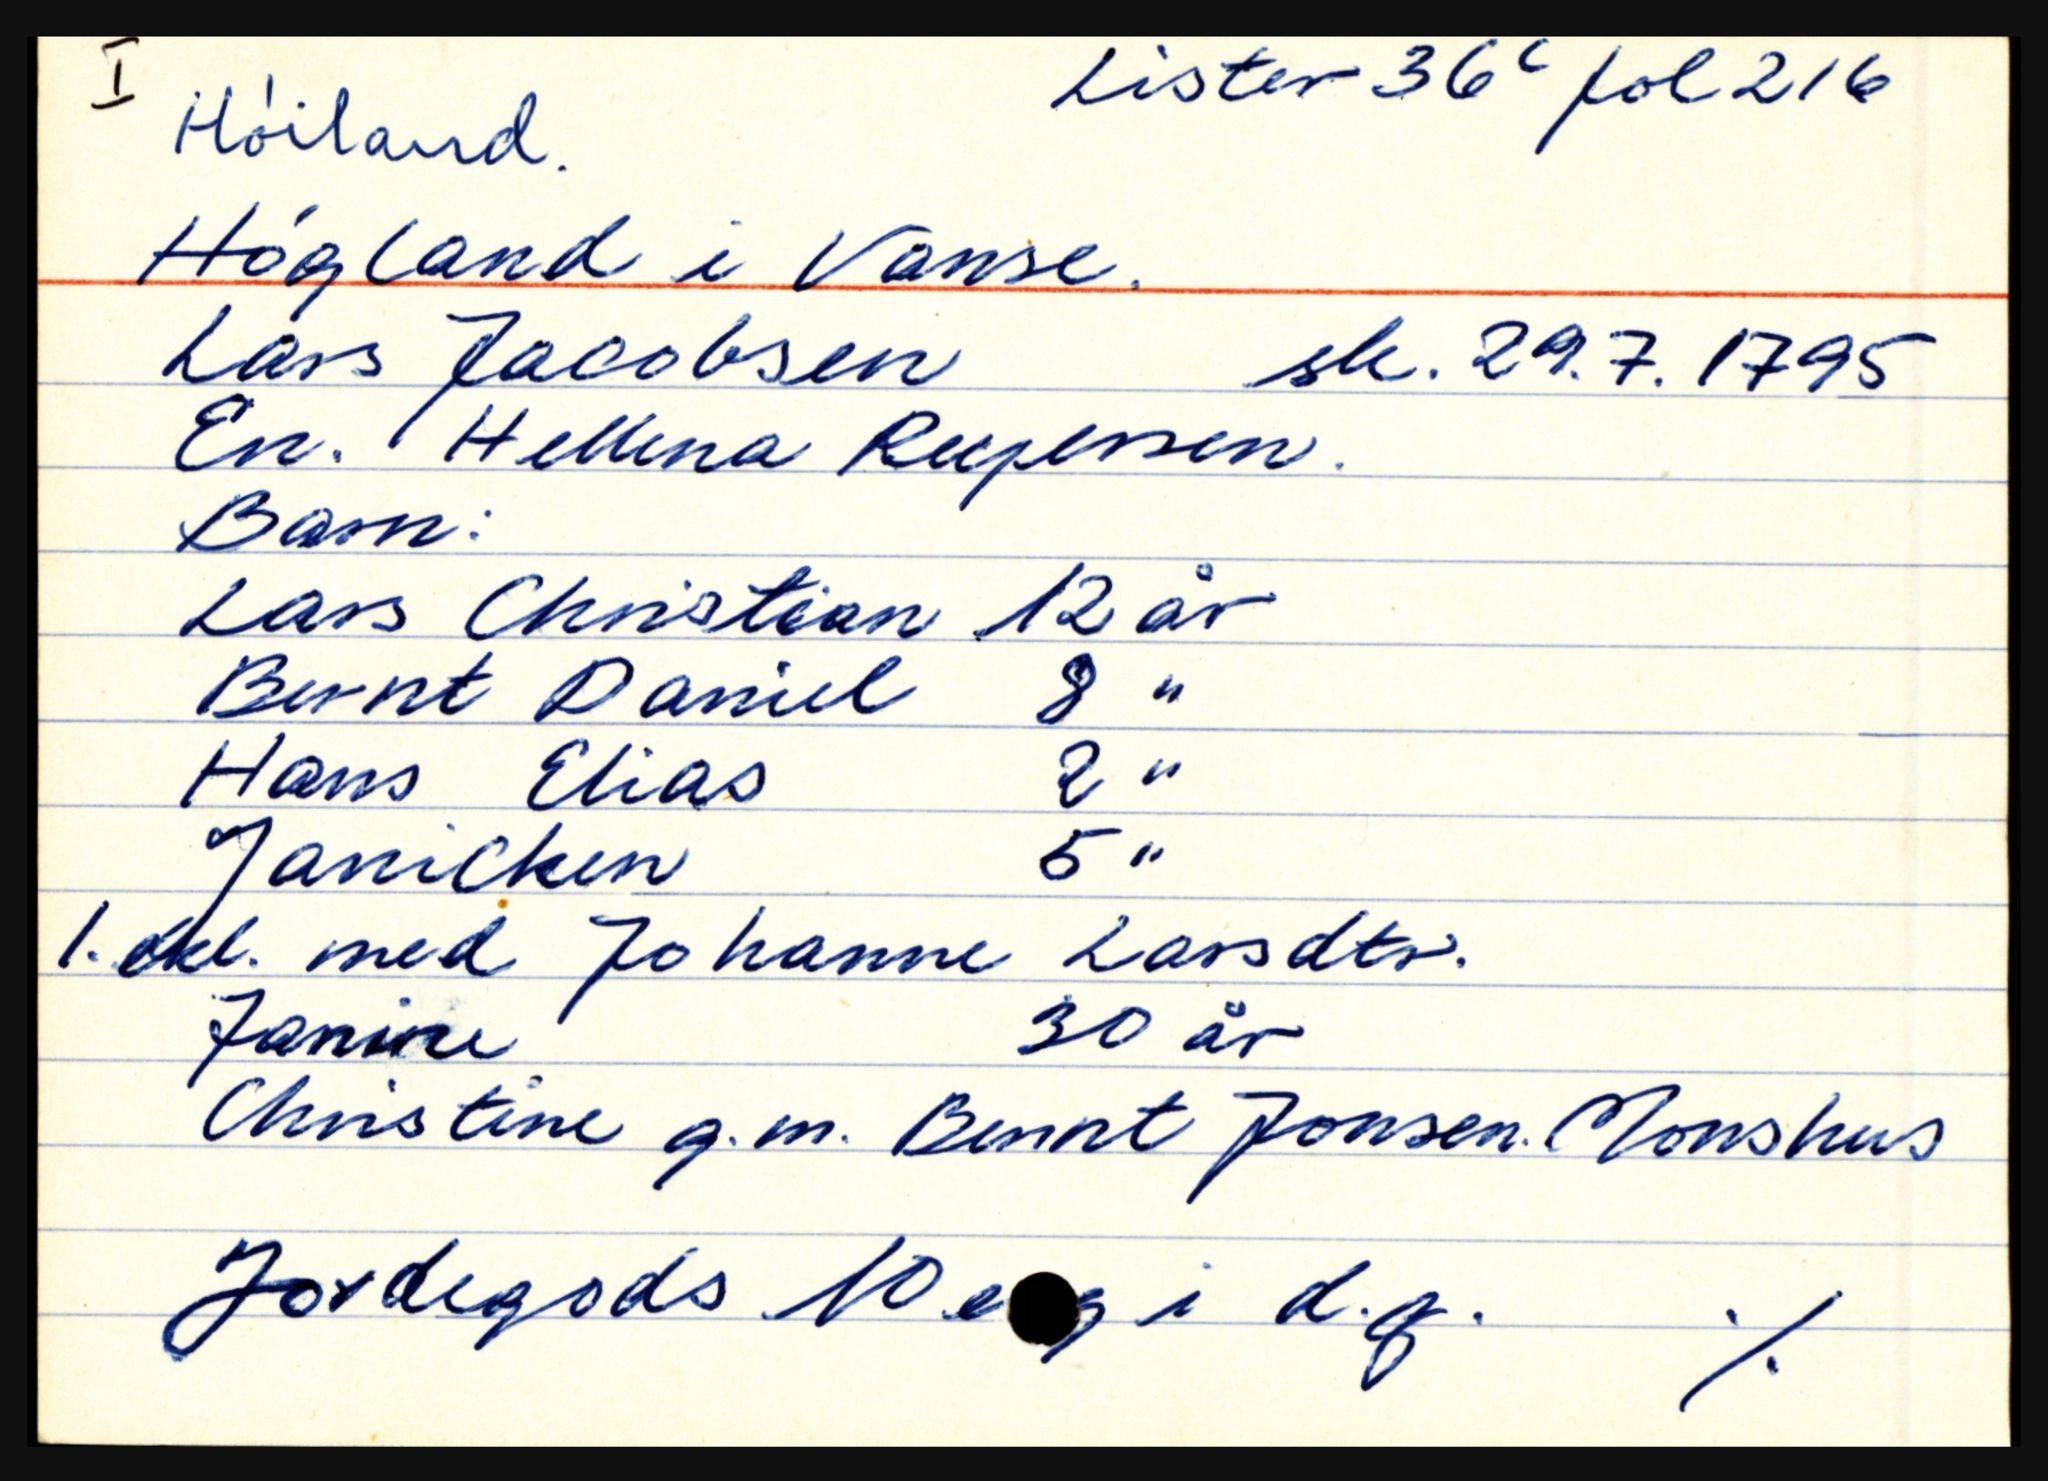 I
Lister 36c fol 216
Höiland.
Högland i Vanse.
Lars Jacobsen sk. 29.7.1795
En. Hellena
Barn:
Lars Christian 12 år
Bernt Daniel 8 "
Hans Elias 2 "
Janicken 5 "
1. ekt. med Johanne Larsdtr.
Janine 30 år
Christine g.m. Bernt Jonsen. Monshus
Jordegods 10 eng i d.g. ./.